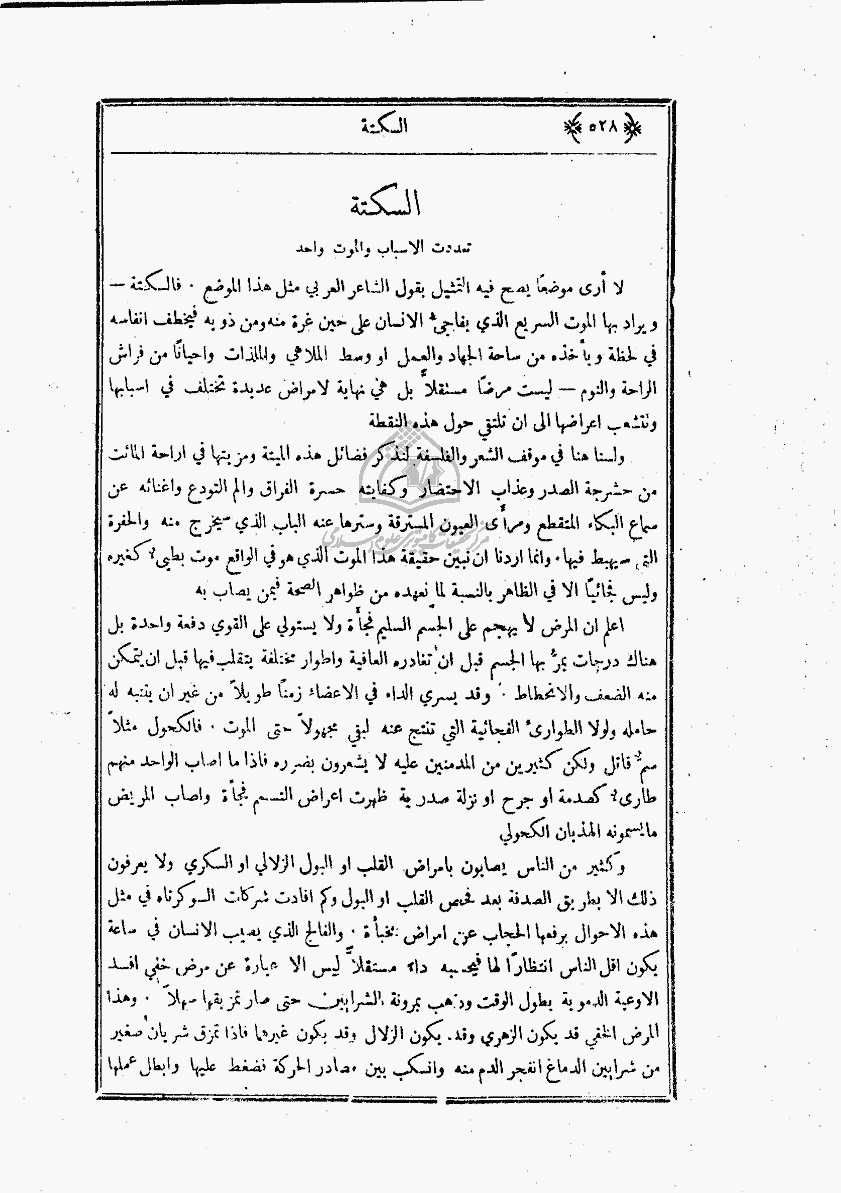 ﴿ ٥٢٨ ﴾ السكتة
السكتة
تعددت الاسباب والموت واحد
لا أرى موضعًا يصح فيه التمثيل بقول الشاعر العربي مثل هذا الموضع . فالسكتة —
ويراد بها الموت السريع الذي يفاجئ الانسان على حين غرة منه ومن ذويه فيخطف انفاسه
في لحظة ويأخذه من ساحة الجهاد والعمل او وسط الملاهي والملذات واحيانًا من فراش
الراحة والنوم — ليست مرضًا مستقلاً بل هي نهاية لامراض عديدة تختلف في اسبابها
وتتشعب اعراضها الى ان تلتقي حول هذه النقطة
ولسنا هنا في موقف الشعر والفلسفة لنذكر فضائل هذه الميتة ومزيتها في اراحة المائت
من حشرجة الصدر وعذاب الاحتضار وكفايته حسرة الفراق والم التودع واغنائه عن
سماع البكاء المتقطع ومرأى العيون المسترقة وسترها عنه الباب الذي سيخرج منه والحفرة
التي سيهبط فيها . وانما اردنا ان نبين حقيقة هذا الموت الذي هو في الواقع موت بطيء كغيره
وليس فجائيًا الا في الظاهر بالنسبة لما نعهده من ظواهر الصحة فيمن يصاب به
اعلم ان المرض لا يهجم على الجسم السليم فجأة ولا يستولي على القوي دفعة واحدة بل
هناك درجات يمرّ بها الجسم قبل ان تغادره العافية واطوار مختلفة يتقلب فيها قبل ان يتمكن
منه الضعف والانحطاط . وقد يسري الداء في الاعضاء زمنًا طويلاً من غير ان يتنبه له
حامله ولولا الطوارئ الفجائية التي تنتج عنه لبقي مجهولاً حتى الموت . فالكحول مثلاً
سمّ قاتل ولكن كثيرين من المدمنين عليه لا يشعرون بضرره فاذا ما اصاب الواحد منهم
طارىء كصدمة او جرح او نزلة صدرية ظهرت اعراض التسمم فجأة واصاب المريض
ما يسمونه الهذيان الكحولي
وكثير من الناس يصابون بامراض القلب او البول الزلالي او السكري ولا يعرفون
ذلك الا بطريق الصدفة بعد فحص القلب او البول وكم افادت شركات السوكرتاه في مثل
هذه الاحوال برفعها الحجاب عن امراض مخبأة . والفالج الذي يصيب الانسان في ساعة
يكون اقل الناس انتظارًا لها فيحسبه داء مستقلاً ليس الا عبارة عن مرض خفي افسد
الاوعية الدموية بطول الوقت وذهب بمرونة الشرايين حتى صار تمزيقها سهلاً . وهذا
المرض الخفي قد يكون الزهري وقد يكون الزلال وقد يكون غيرهما فاذا تمزق شريان صغير
من شرايين الدماغ انفجر الدم منه وانسكب بين مصادر الحركة فضغط عليها وابطل عملها